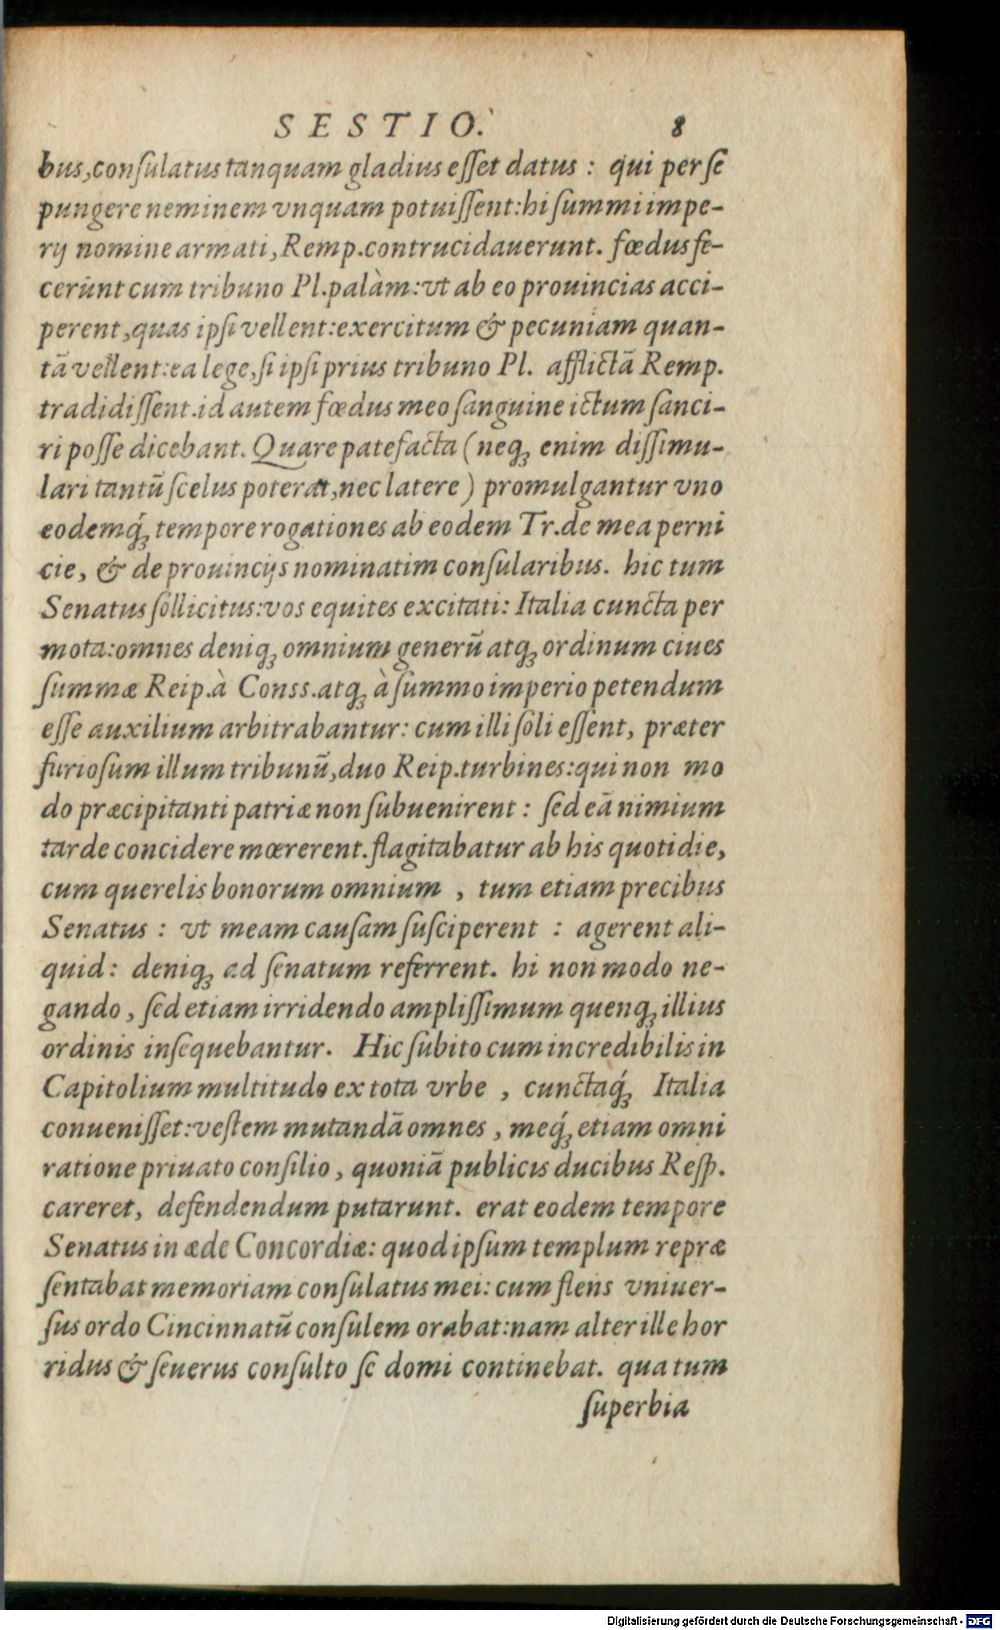 SESTIO. 8
bus,conſulatus tanquam gladius eſſet datus : qui per ſe
pungere neminem vnquam potuiſſent:hi ſummi impe-
rij nomine armati, Remp.contrucidauerunt. fœdus fe-
cerunt cum tribuno Pl.palàm:vt ab eo prouincias acci-
perent,quas ipſi vellent:exercitum & pecuniam quan-
tã vellent:ea lege,ſi ipſi prius tribuno Pl. afflictã Remp.
tradidiſſent.id autem fœdus meo ſanguine ictum ſanci-
ri poſſe dicebant. Quare patefacta (neq; enim diſſimu-
lari tantũ ſcelus poterat,nec latere) promulgantur vno
eodemq́; tempore rogationes ab eodem Tr.de mea perni
cie, & de prouincijs nominatim conſularibus. hic tum
Senatus ſollicitus:vos equites excitati: Italia cuncta per
mota:omnes deniq; omnium generũ atq; ordinum ciues
ſummæ Reip.à Conss.atq; à ſummo imperio petendum
eſſe auxilium arbitrabantur: cum illi ſoli eſſent, præter
furioſum illum tribunũ,duo Reip.turbines:qui non mo
do præcipitanti patriæ non ſubuenirent : ſed eã nimium
tarde concidere mœrerent.flagitabatur ab his quotidie,
cum querelis bonorum omnium , tum etiam precibus
Senatus : vt meam cauſam ſuſciperent : agerent ali-
quid: deniq; ad ſenatum referrent. hi non modo ne-
gando , ſed etiam irridendo ampliſſimum quenq; illius
ordinis inſequebantur. Hic ſubito cum incredibilis in
Capitolium multitudo ex tota vrbe , cunctaq́; Italia
conueniſſet:veſtem mutandã omnes , meq́; etiam omni
ratione priuato conſilio , quoniã publicis ducibus Reſp.
careret, defendendum putarunt. erat eodem tempore
Senatus in æde Concordiæ: quod ipſum templum repræ
ſentabat memoriam conſulatus mei: cum flens vniuer-
ſus ordo Cincinnatũ conſulem orabat:nam alter ille hor
ridus & ſeuerus conſulto ſe domi continebat. qua tum
ſuperbia
Digitalisierung gefördert durch die Deutsche Forschungsgemeinschaft - DFG